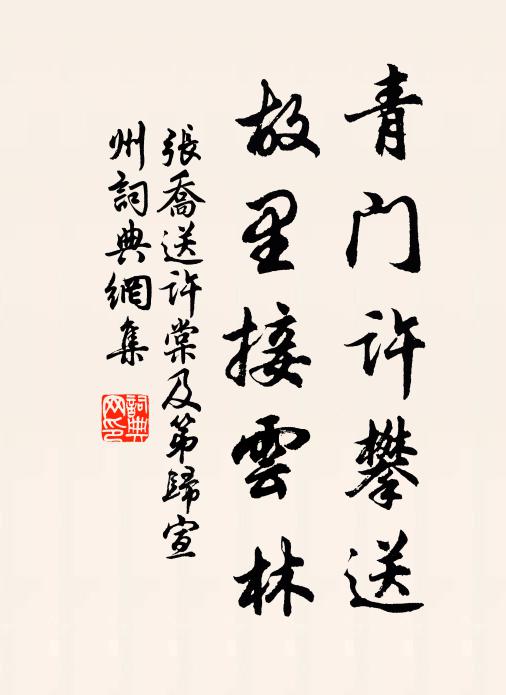 青门许攀送
故里接雲林
張喬送许棠及第歸宣
州詞典網集
詞典
网印